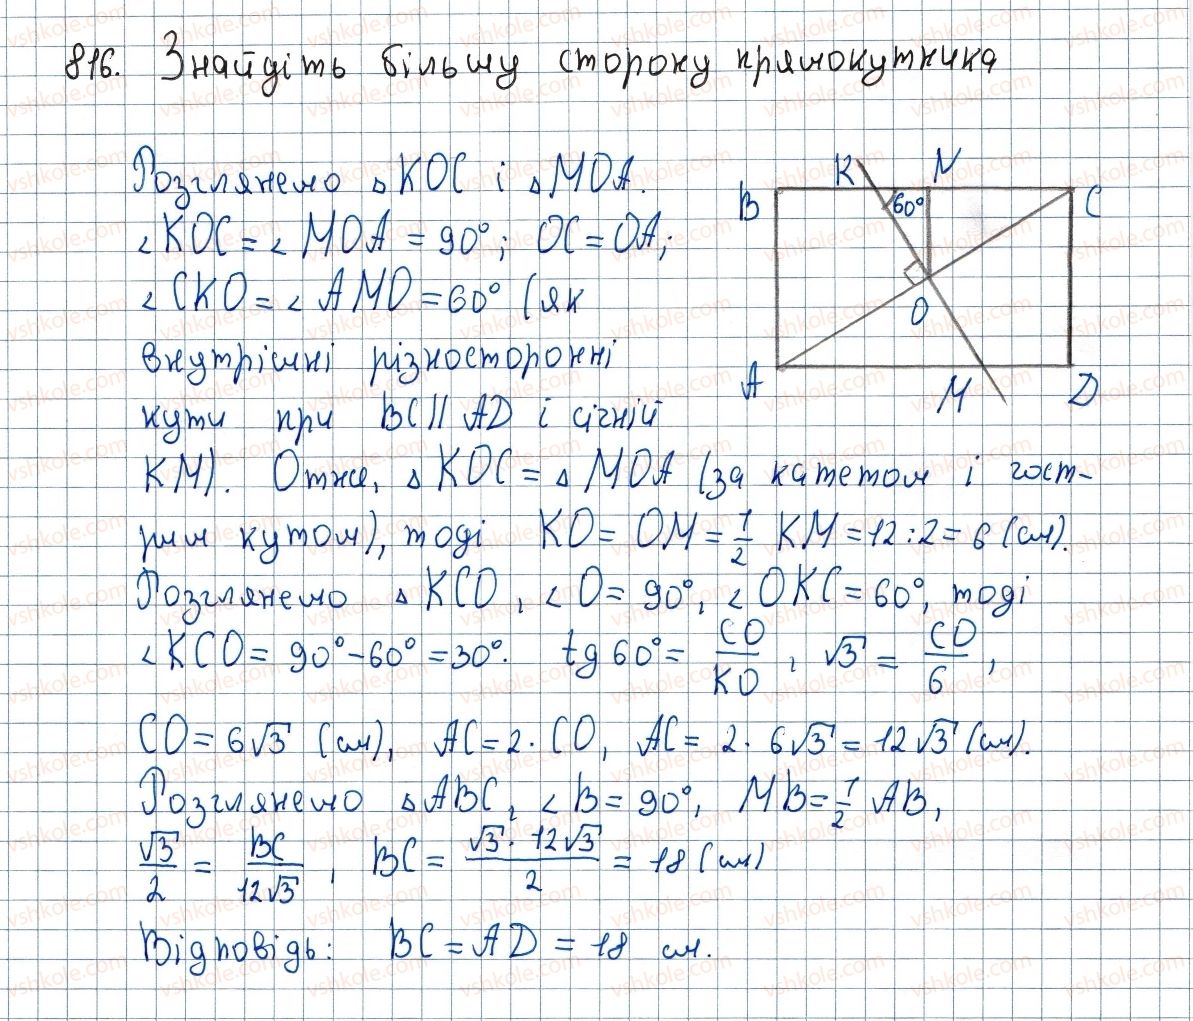 816. Знайдіть більшу сторону прямокутника
Розглянемо △KOC і △MOA.
∠KOC = ∠MOA = 90°; OC = OA;
∠CKO = ∠AMO = 60° (як
внутрішні різносторонні
кути при BC || AD і січній
KM). Отже, △KOC = △MOA (за катетом і гост-
рим кутом), тоді KO = OM = 1/2 KM = 12 : 2 = 6 (см).
Розглянемо △KCO, ∠O = 90°, ∠OKC = 60°, тоді
∠KCO = 90° - 60° = 30°. tg 60° = CO/KO, √3 = CO/6,
CO = 6√3 (см), AC = 2 · CO, AC = 2 · 6√3 = 12√3 (см).
Розглянемо △ABC, ∠B = 90°, MB = 1/2 AB,
√3/2 = BC/12√3, BC = √3 · 12√3/2 = 18 (см)
Відповідь: BC = AD = 18 см.
K N
B 60° C
O
A M D
vshkole.com